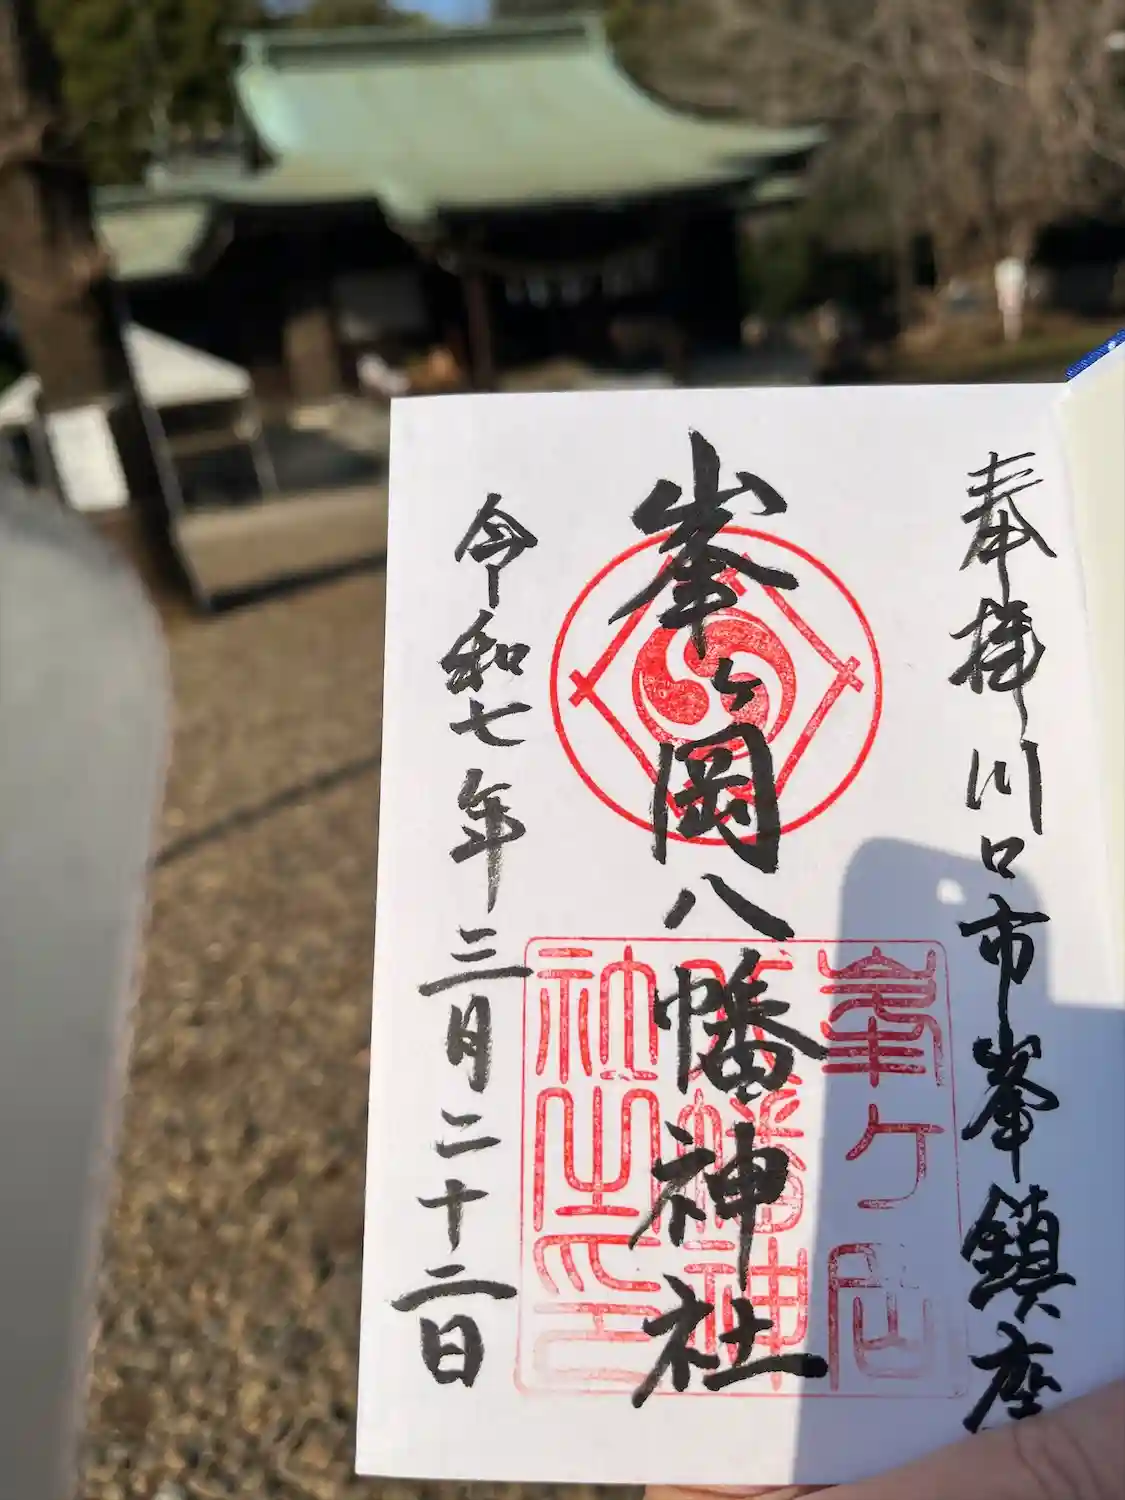 奉拝 川口市峯鎮座
峯ヶ岡八幡神社
令和七年三月二十二日
峯ヶ岡
八幡神
社之印